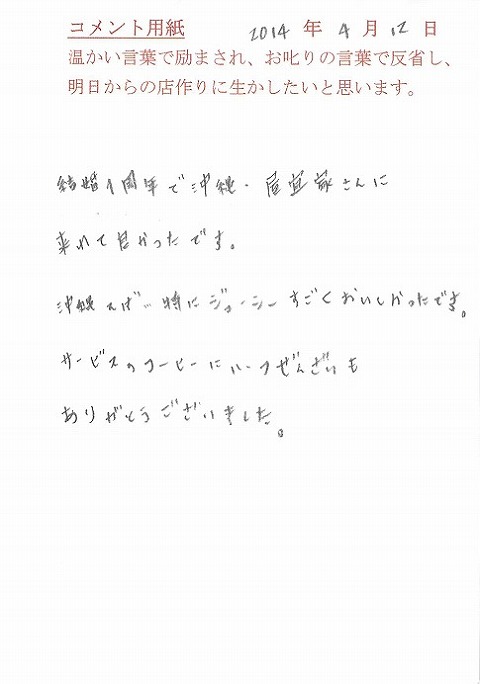 コメント用紙 2014 年 4 月 12 日
温かい言葉で励まされ、お叱りの言葉で反省し、
明日からの店作りに生かしたいと思います。
結婚1周年で沖縄・屋宜家さんに
来れて良かったです。
沖縄そば… 特にジューシーすごくおいしかったです。
サービスのコーヒーにハーフぜんざいも
ありがとうございました。